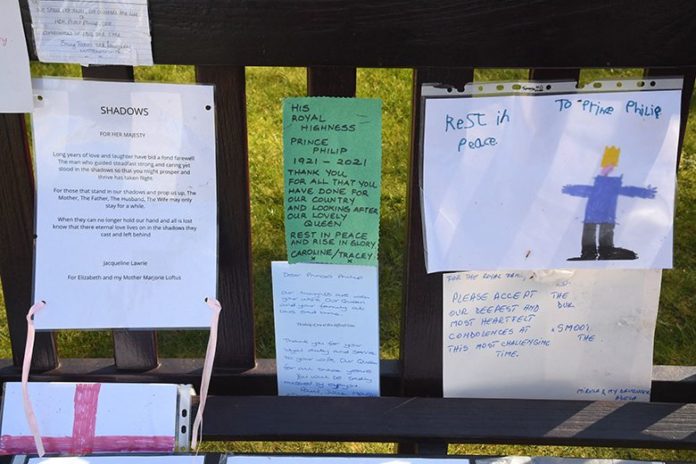 SHADOWS
FOR HER MAJESTY
Long years of love and laughter have bid a fond farewell
The man who guided steadfast strong and caring yet
stood in the shadows so that you might prosper and
thrive has taken flight.
For those that stand in our shadows and prop us up, The
Mother, The Father, The Husband, The Wife may only
stay for a while.
When they can no longer hold our hand and all is lost
know that there eternal love lives on in the shadows they
cast and left behind
Jacqueline Lawrie
For Elizabeth and my Mother Marjorie Loftus
HIS
ROYAL
HIGHNESS
PRINCE
PHILIP
1921 - 2021
THANK YOU
FOR ALL THAT YOU
HAVE DONE FOR
OUR COUNTRY
AND LOOKING AFTER
OUR LOVELY
QUEEN
REST IN PEACE
AND RISE IN GLORY
CAROLINE/TRACEY
Dear Prince Philip
Our thoughts are with
your wife Our Queen
and your family at
this sad time
Thank you for your
loyal duty and service
to your wife, Our Queen
for all these years
You will be sadly
missed by
Rest in
Peace
To Prince Philip
FOR THE ROYAL FAMILY
PLEASE ACCEPT THE
OUR DEEPEST AND
MOST HEARTFELT
CONDOLENCES AT
THIS MOST CHALLENGING
TIME.